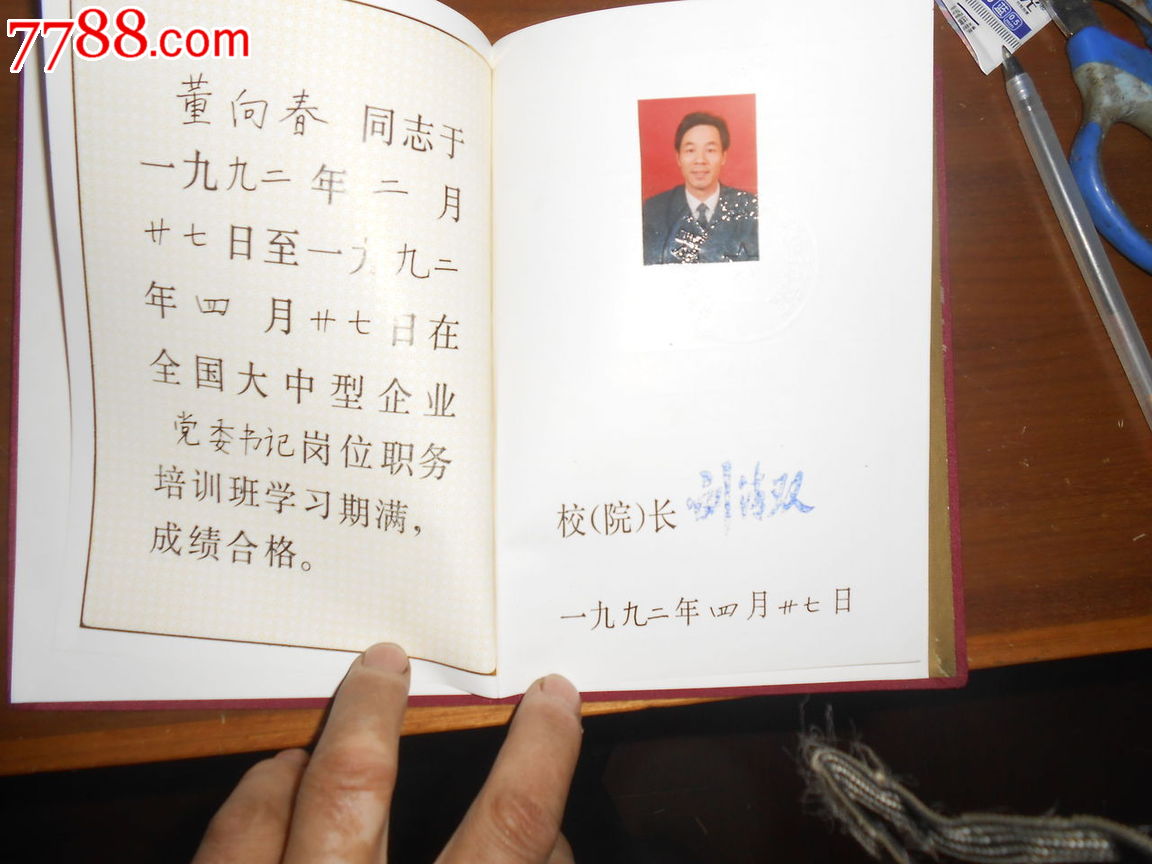 7788.com
董向春 同志于
一九九二年 二 月
廿七日至一九九二
年四 月廿七日在
全国大中型企业
党委书记岗位职务
培训班学习期满，
成绩合格。
校(院)长
一九九二年四月廿七日
0.5